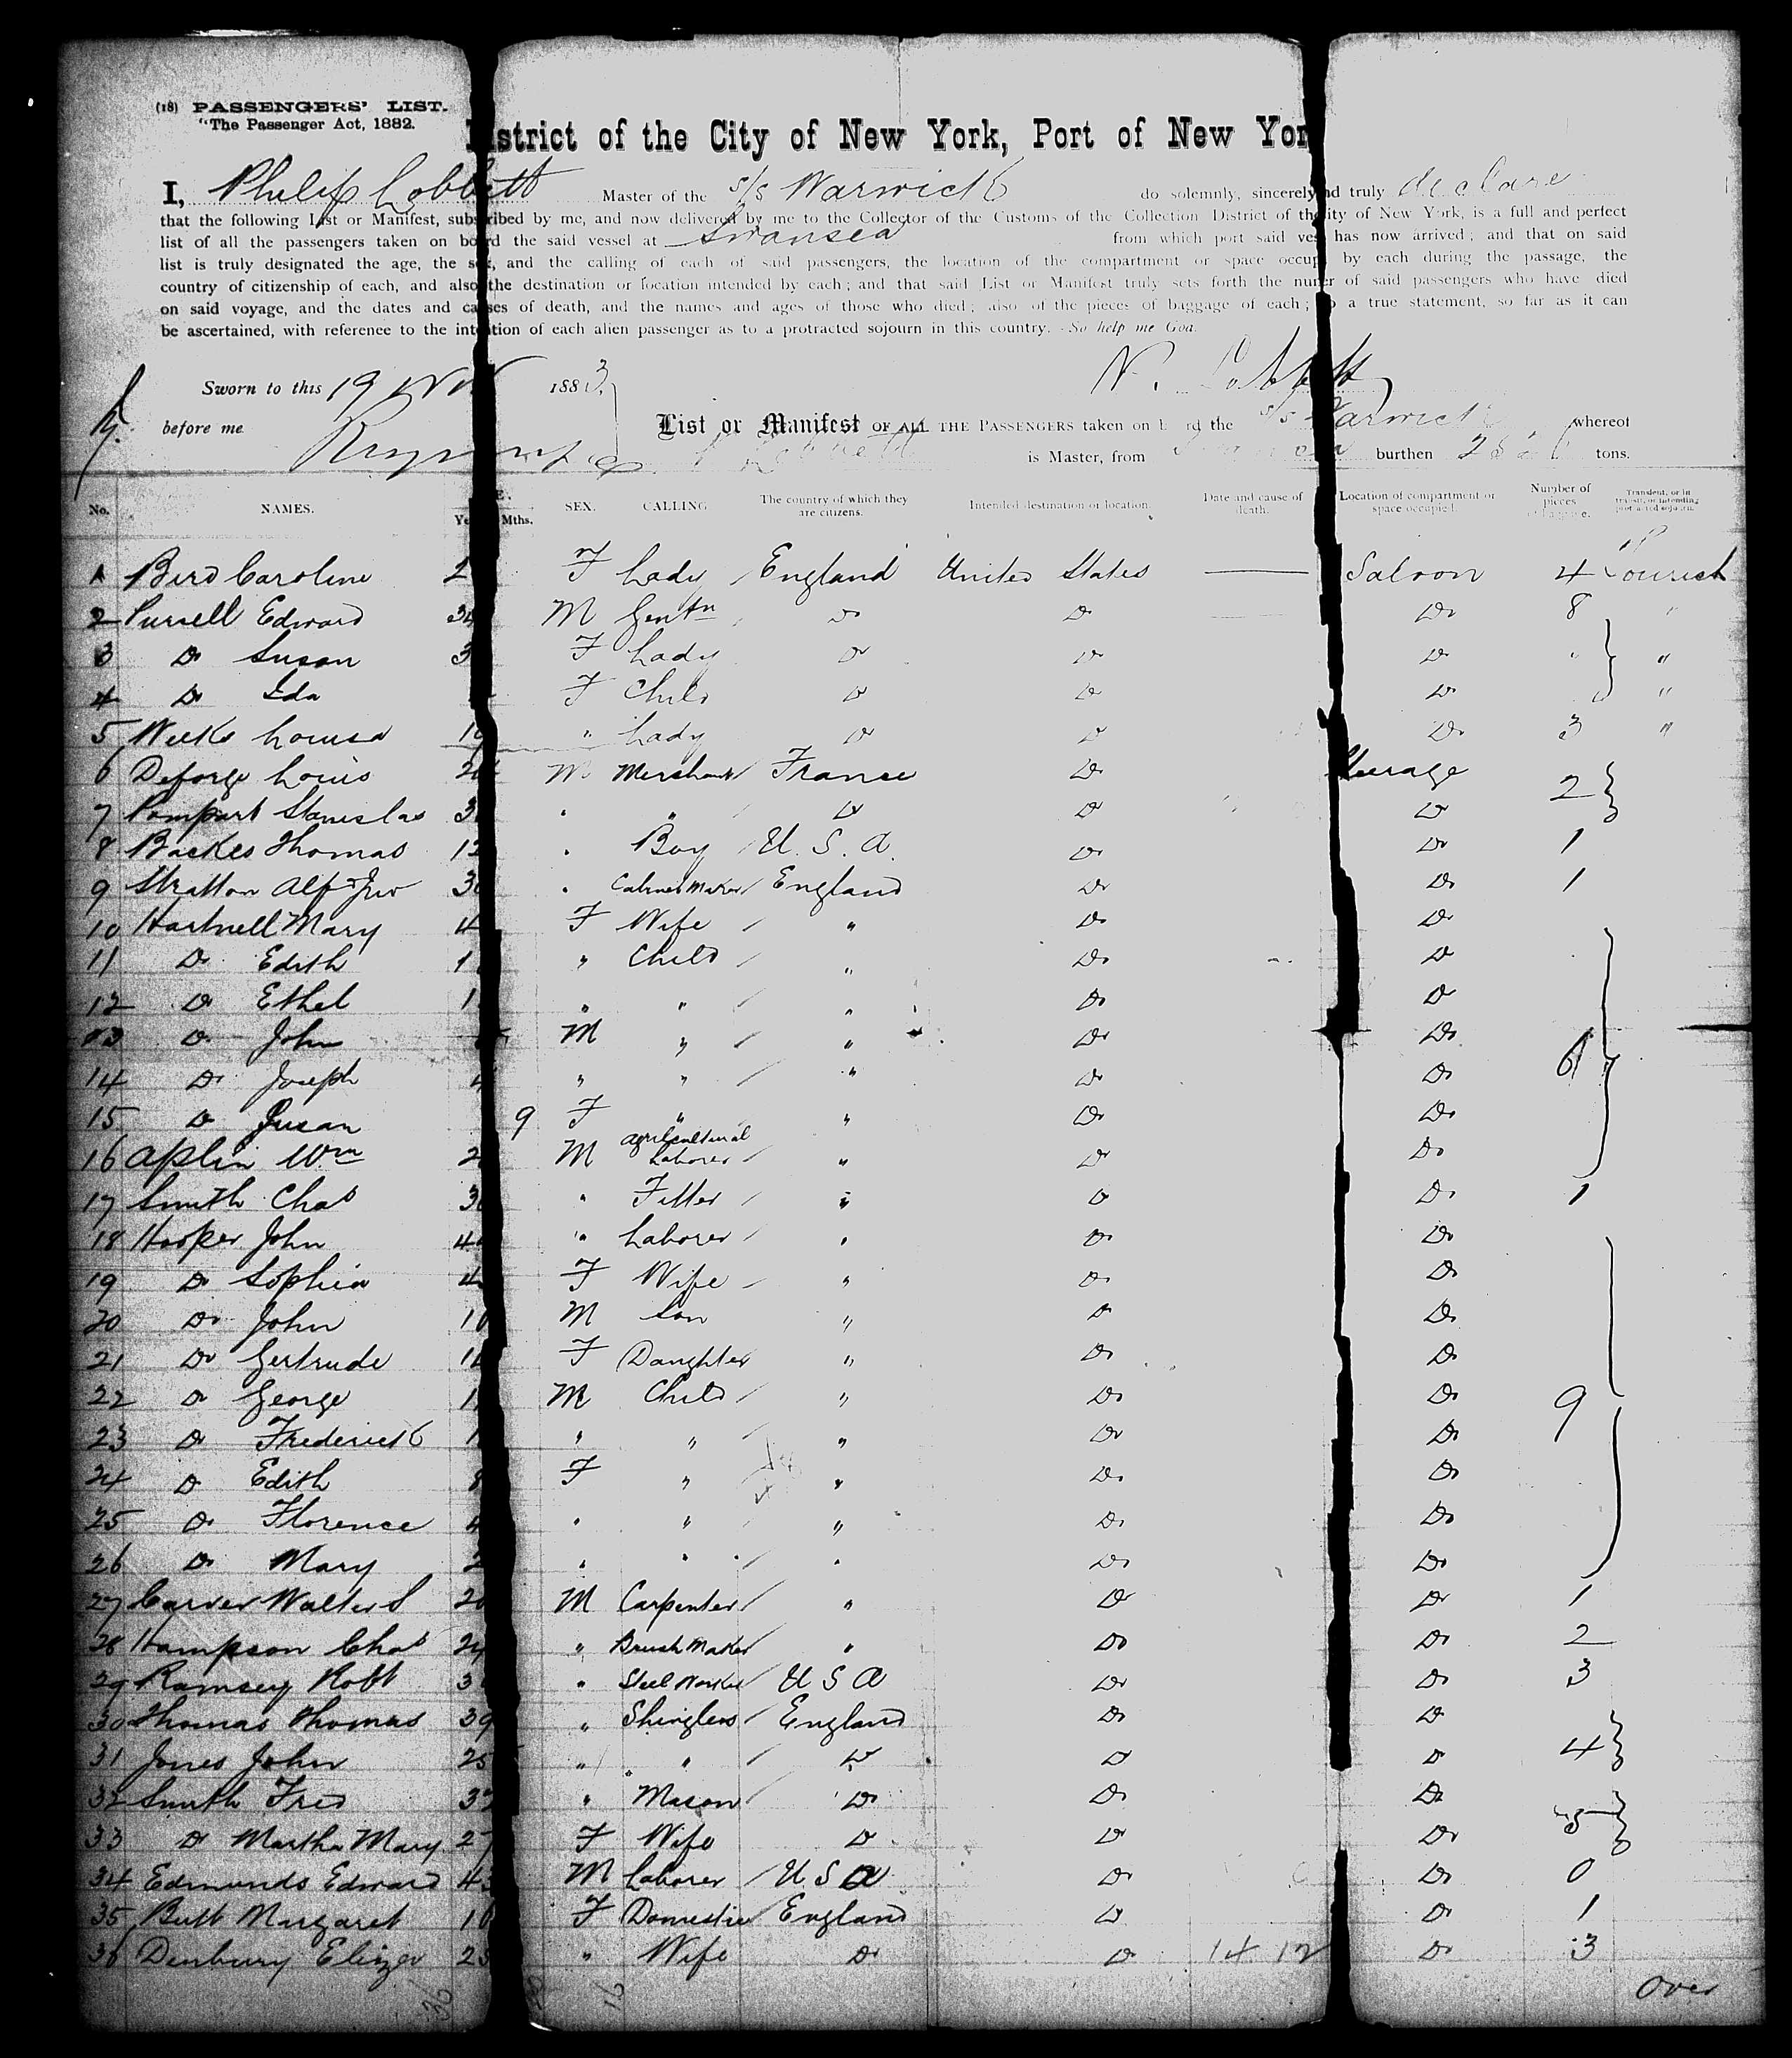 (18) PASSENGERS' LIST.
"The Passenger Act, 1882.
District of the City of New York, Port of New Yor
I, Philip Cobbett Master of the s/s Warwick do solemnly, sincerely and truly declare
that the following List or Manifest, subscribed by me, and now delivered by me to the Collector of the Customs of the Collection District of the City of New York, is a full and perfect
list of all the passengers taken on board the said vessel at Swansea from which port said vessel has now arrived; and that on said
list is truly designated the age, the sex, and the calling of each of said passengers, the location of the compartment or space occupied by each during the passage, the
country of citizenship of each, and also the destination or location intended by each; and that said List or Manifest truly sets forth the number of said passengers who have died
on said voyage, and the dates and causes of death, and the names and ages of those who died; also of the pieces of baggage of each; also a true statement, so far as it can
be ascertained, with reference to the intention of each alien passenger as to a protracted sojourn in this country. So help me God.
Sworn to this 19 Nov 1883
before me
List or Manifest OF ALL THE PASSENGERS taken on board the s/s Warwick whereof
is Master, from burthen tons.
No. NAMES. Mths. SEX. CALLING The country of which they are citizens. Intended destination or location Date and cause of death. Location of compartment or space occupied. Number of pieces of baggage. Transient, or in transit, or intending protracted sojourn.
1 Bird Caroline 2 F Lady England United States — Saloon 4 Tourist
2 Pursell Edward 34 M Gentn Do Do Do 8 "
3 Do Susan 3 F Lady Do Do Do " "
4 Do Ida F Child Do Do Do "
5 Weeks Louisa 1 " Lady Do Do Do 3 "
6 Deforge Louis 2 M Merchant France Do Steerage 2
7 Pompart Stanislas 3 " " Do Do Do
8 Backes Thomas 12 " Boy U.S.A. Do Do 1
9 Stratton Alfd Jno 3 " Cabinet Maker England Do Do 1
10 Hartnell Mary 4 F Wife " Do Do
11 Do Edith 1 " Child " Do Do
12 Do Ethel 1 " " " Do Do
13 Do John M " " Do Do 6
14 Do Joseph 4 " " " Do Do
15 Do Susan 9 F " " Do Do
16 Aplin Wm 2 M Agricultural Laborer " Do Do
17 Smith Chas 3 " Fitter " Do Do 1
18 Hooper John 4 " Laborer " Do Do
19 Do Sophia 4 F Wife " Do Do
20 Do John 1 M Son " Do Do
21 Do Gertrude 1 F Daughter " Do Do
22 Do George 1 M Child " Do Do 9
23 Do Frederick 1 " " " Do Do
24 Do Edith 8 F " " Do Do
25 Do Florence 4 " " " Do Do
26 Do Mary 2 " " " Do Do
27 Carver Walter S 2 M Carpenter " Do Do 1
28 Hampson Chas 24 " Brush Maker " Do Do 2
29 Ramsey Robt 3 " Steel Worker U S A Do Do 3
30 Thomas Thomas 39 " Shinglers England Do Do
31 Jones John 25 " " Do Do Do 4
32 Smith Fred 33 " Mason Do Do Do
33 Do Martha Mary 27 F Wife Do Do Do 5
34 Edmunds Edward 43 M Laborer U S A Do Do 0
35 Butt Margaret 1 F Domestic England Do Do 1
36 Denbury Eliza 23 " Wife Do Do 14 12 Do 3
Over